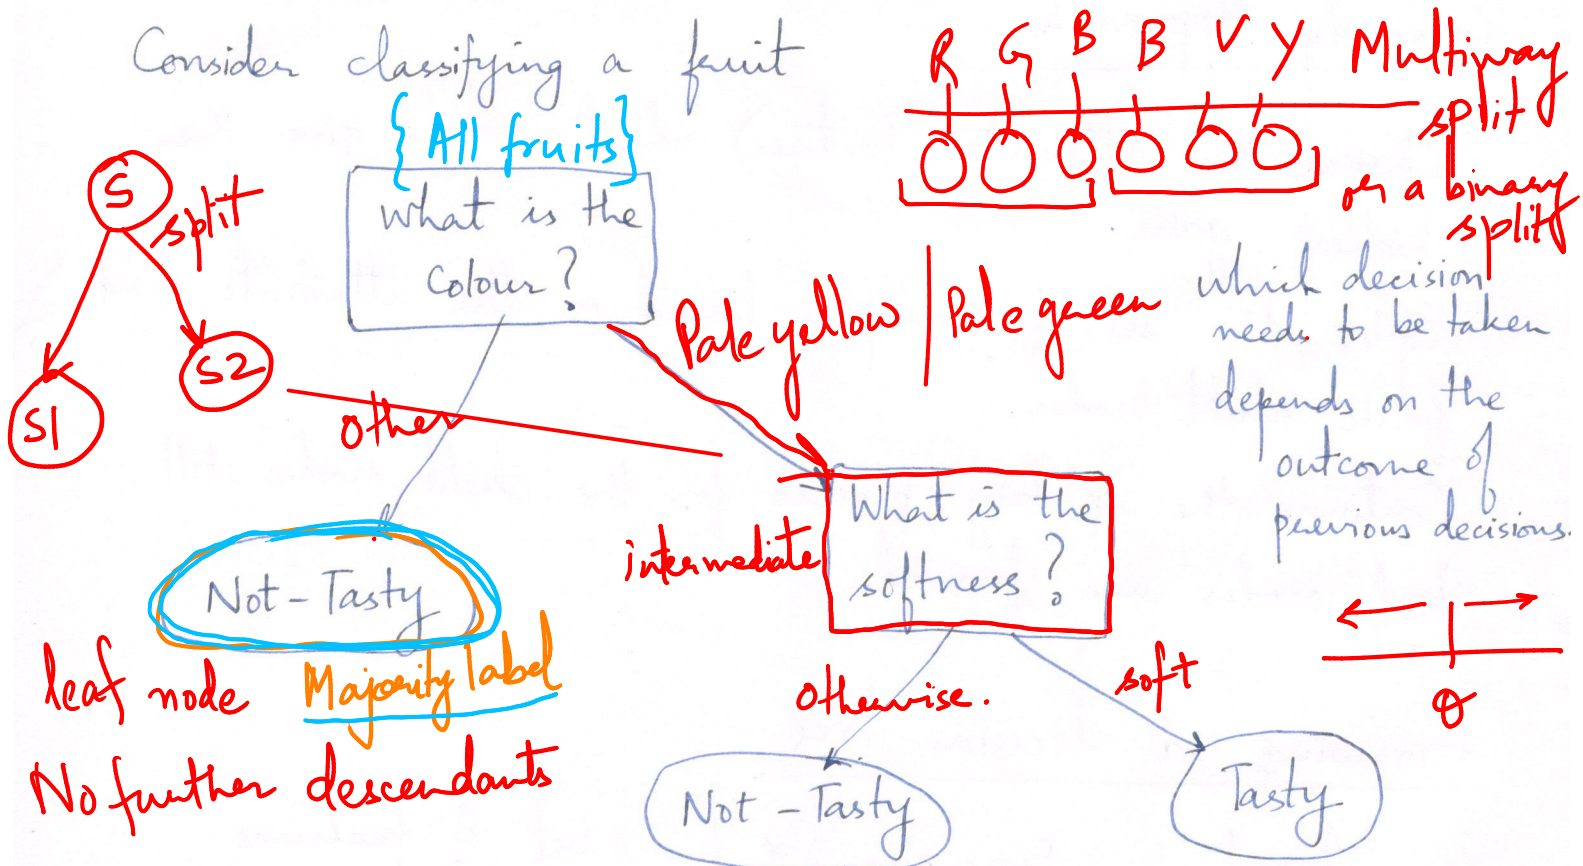 Consider classifying a fruit
{ All fruits }
R G B B V Y Multiway
split
or a binary
split
S
split
S1
S2
what is the
colour?
Pale yellow | Pale green
other
which decision
needs to be taken
depends on the
outcome of
previous decisions.
What is the
softness?
intermediate
Not-Tasty
leaf node Majority label
No further descendants
otherwise.
soft
θ
Not-Tasty
Tasty